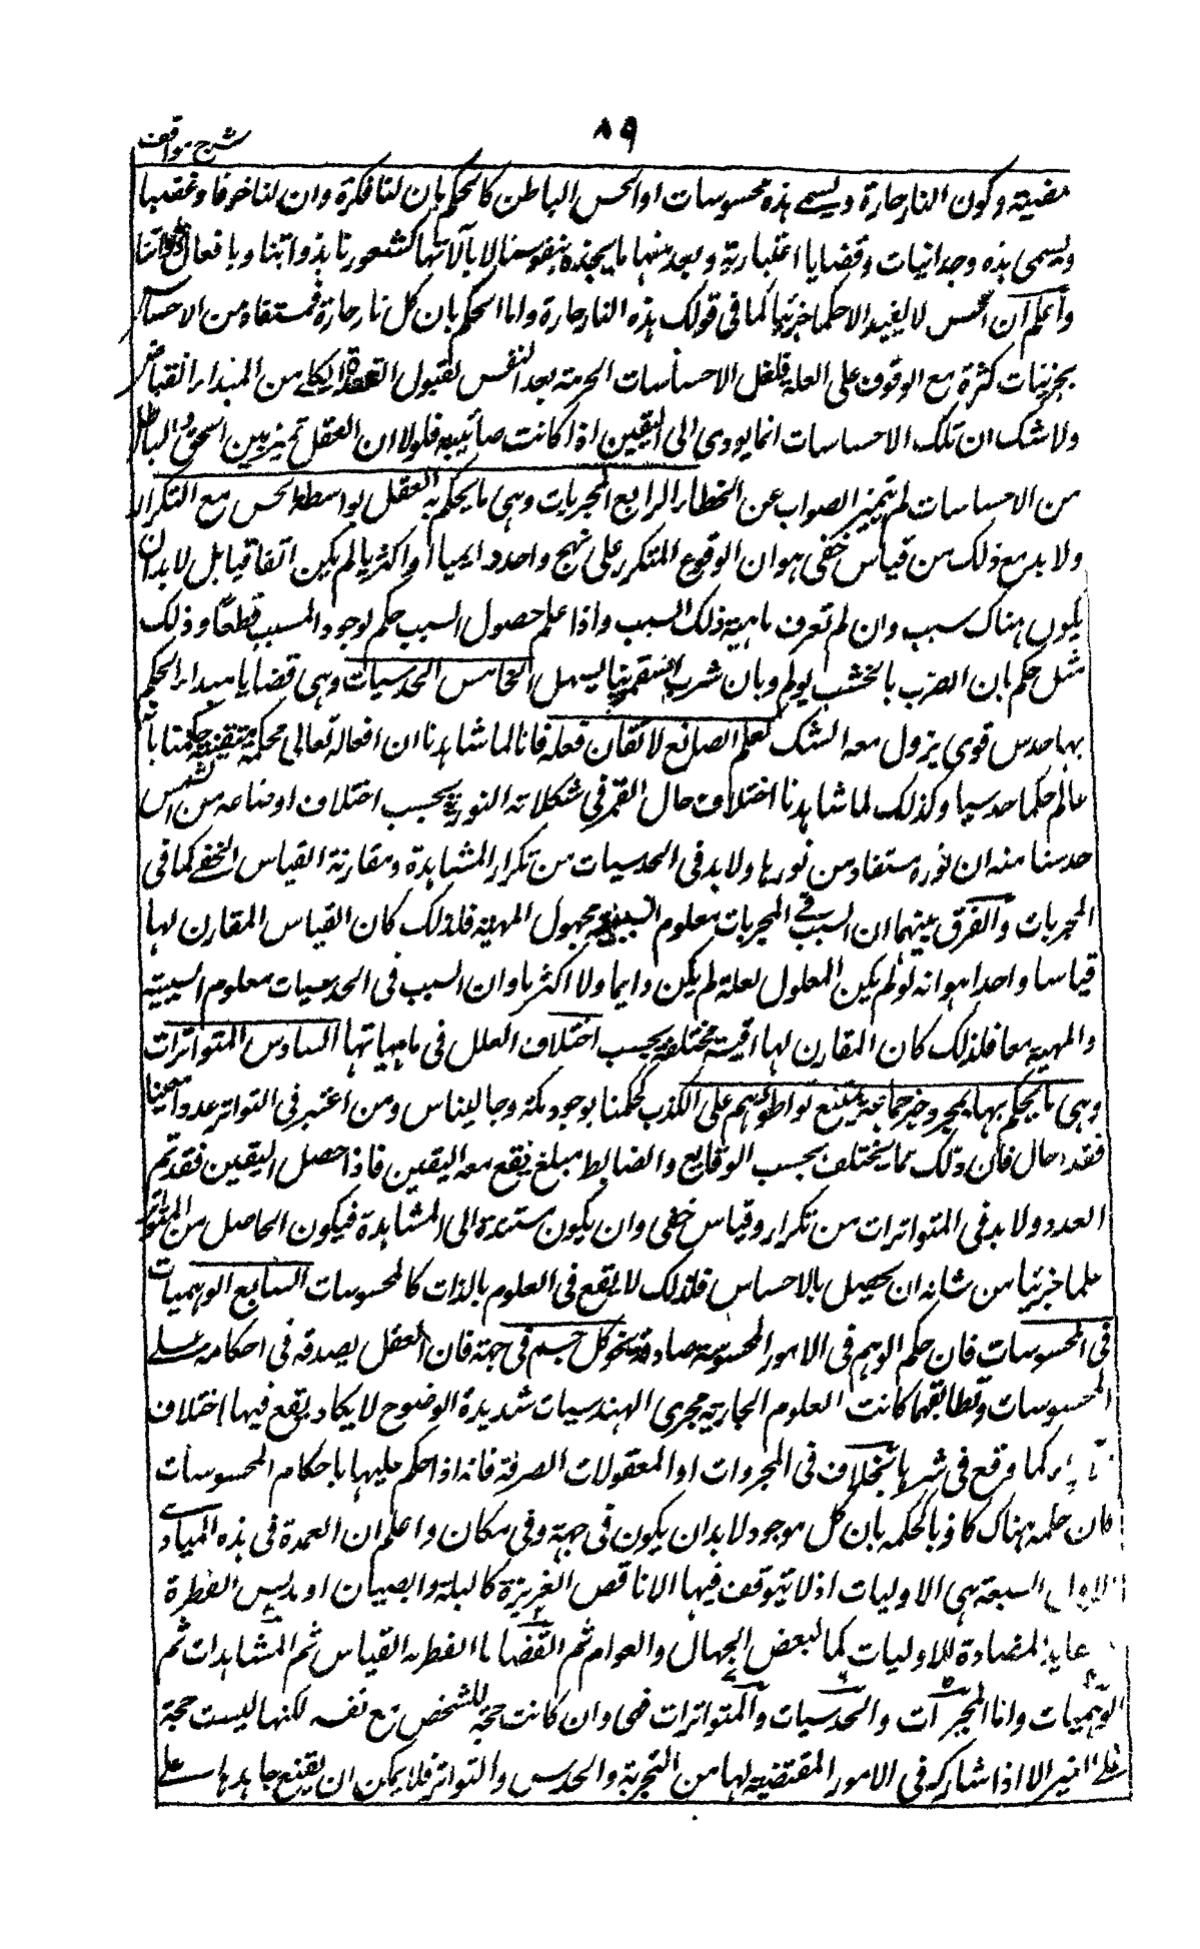 ٨٩
شرح مواقف
مضيئة وكون النار حارة ويسمى هذه محسوسات او الحس الباطن كالحكم بان لنا فكرة وان لنا خوفا وغضبا
ويسمى هذه وجدانيات وقضايا اعتبارية ويعد منها ما يجده بنفوسنا لا بآلاتها كشعورنا بذواتنا وبافعال ذواتنا
واعلم ان الحس لا يفيد الا حكما جزئيا كما فى قولك هذه النار حارة واما الحكم بان كل نار حارة فمستفاد من الاحساس
بجزئيات كثيرة مع الوقوف على العلة فلعل الاحساسات الجزئية يعد النفس لقبول العقد الكلى من المبداء الفياض
ولا شك ان تلك الاحساسات انما يودى الى اليقين اذا كانت صائبة فلولا ان العقل تميز بين الحق والباطل
من الاحساسات لم يتميز الصواب عن الخطاء الرابع المجربات وهى ما يحكم به العقل بواسطة الحس مع التكرار
ولا بد مع ذلك من قياس خفى هو ان الوقوع المتكرر على نهج واحد دايما او اكثريا لم يكن اتفاقيا بل لا بد ان
يكون هناك سبب وان لم تعرف ماهية ذلك السبب واذا علم حصول السبب حكم بوجود المسبب قطعا وذلك
مثل حكم بان الضرب بالخشب يولم وبان شرب السقمونيا يسهل الخامس الحدسيات وهى قضايا مبداء الحكم
بها حدس قوى يزول معه الشك كعلم الصانع لاتقان فعله فانا لما شاهدنا ان افعاله تعالى محكمة متقنة حكمنا بانه
عالم حكما حدسيا وكذلك لما شاهدنا اختلاف حال القمر فى تشكلاته النورية بحسب اختلاف اوضاعه من الشمس
حدسنا منه ان نوره مستفاد من نورها ولا بد فى الحدسيات من تكرار المشاهدة ومقارنة القياس الخفى كما فى
المجربات والفرق بينهما ان السبب فى المجربات معلوم السببية مجهول المهية فلذلك كان القياس المقارن لها
قياسا واحدا هو انه لو لم يكن المعلول لعلة لم يكن دايما ولا اكثريا وان السبب فى الحدسيات معلوم السببية
والمهية معا فلذلك كان المقارن لها اقيسة مختلفة بحسب اختلاف العلل فى ماهياتها السادس المتواترات
وهى ما يحكم بها بمجرد خبر جماعة يمتنع تواطؤهم على الكذب كحكمنا بوجود مكة وجالينوس ومن اعتبر فى التواتر عددا معينا
فقد احال فان ذلك مما يختلف بحسب الوقايع والضابط مبلغ يقع معه اليقين فاذا حصل اليقين فقد تم
العدد ولا بد فى المتواترات من تكرار وقياس خفى وان يكون مستندة الى المشاهدة فيكون الحاصل من التواتر
علما جزئيا من شانه ان يحصل بالاحساس فلذلك لا يقع فى العلوم بالذات كالمحسوسات السابع الوهميات
فى المحسوسات فان حكم الوهم فى الامور المحسوسة صادق نحو كل جسم فى جهة فان العقل يصدقه فى احكامه على
المحسوسات ولتطابقهما كانت العلوم الجارية مجرى الهندسيات شديدة الوضوح لا يكاد يقع فيها اختلاف
كما وقع فى غيرها بخلاف فى المجردات او المعقولات الصرفة فانه اذا حكم عليها باحكام المحسوسات
كان حكمه هناك كاذبا لحكمه بان كل موجود لا بد ان يكون فى جهة وفى مكان واعلم ان العمدة فى هذه المبادى
الاول السبعة هى الاوليات اذ لا يتوقف فيها الا ناقص الغريزة كالبله والصبيان او مدنس الفطرة
المضادة للاوليات كما لبعض الجهال والعوام ثم القضايا الفطرية القياس ثم المشاهدات ثم
الوهميات واما المجربات والحدسيات والمتواترات فهى وان كانت حجة للشخص مع نفسه لكنها ليست حجة
على الغير الا اذا شاركه فى الامور المقتضية لها من التجربة والحدس والتواتر فلا يمكن ان يقنع جاحدها على